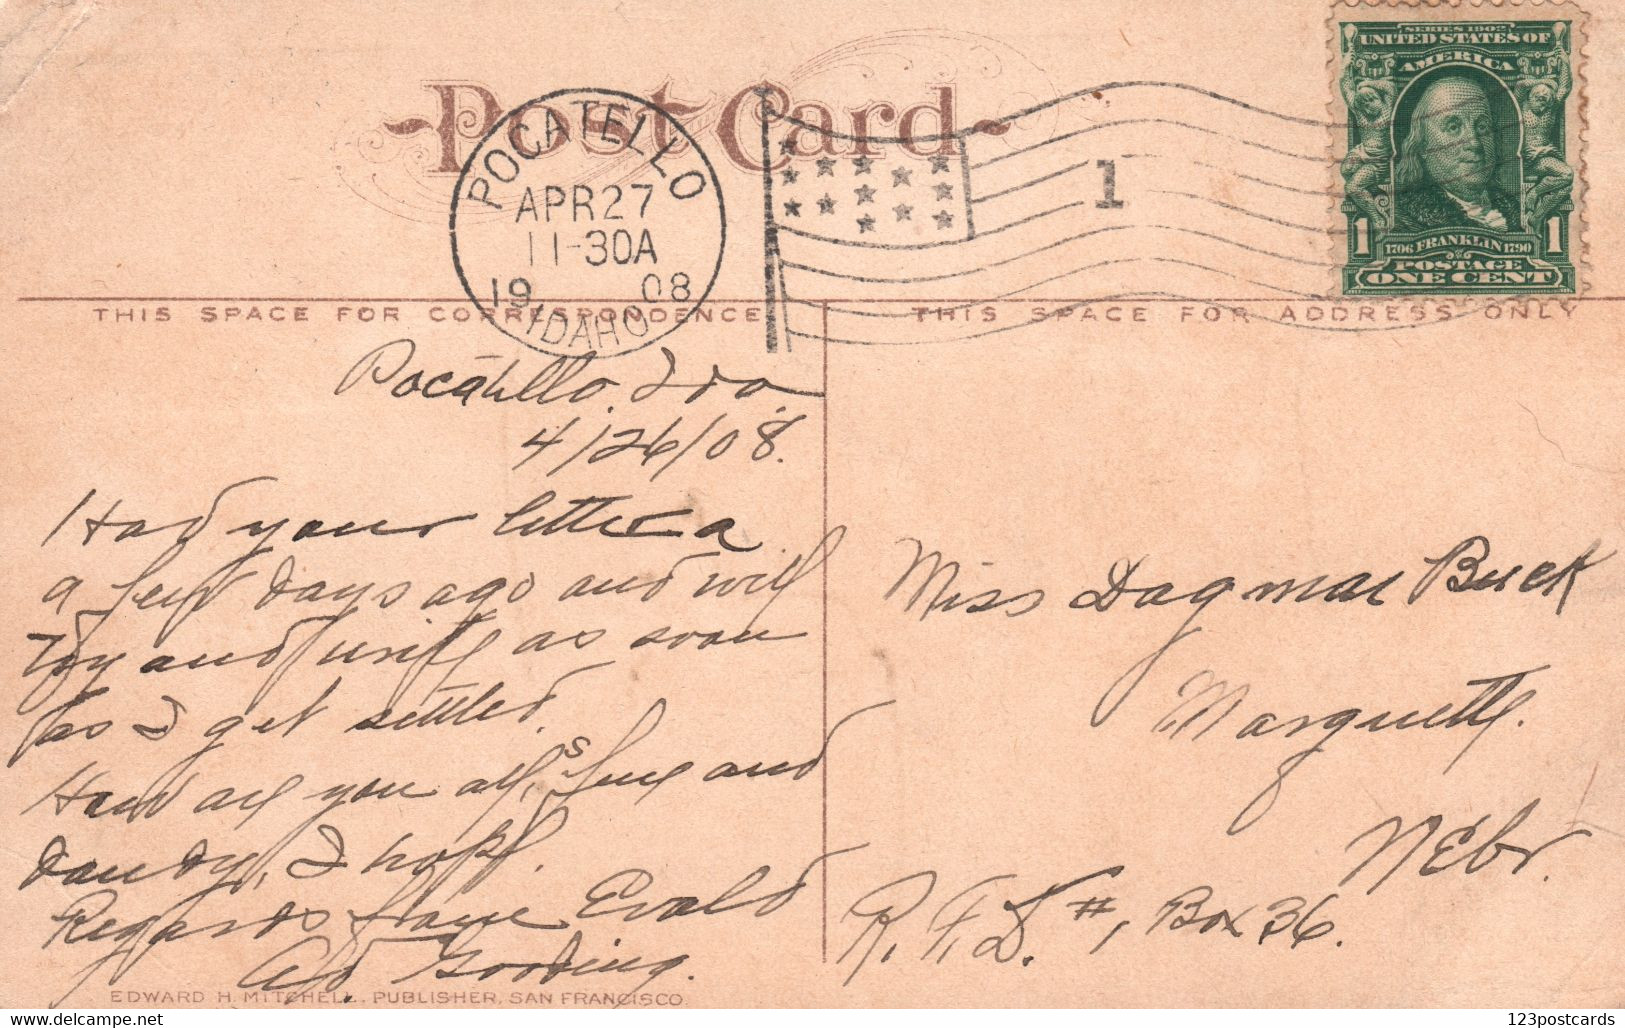 Post Card
POCATELLO
APR 27
11-30A
1908
IDAHO
1
SERIES 1902
UNITED STATES OF
AMERICA
1706 FRANKLIN 1790
1 1
POSTAGE
ONE CENT
THIS SPACE FOR CORRESPONDENCE
THIS SPACE FOR ADDRESS ONLY
Pocatello, Ida.
4/26/08.
Had your letter a
a few days ago and will
try and write as soon
as I get settled.
How are you all, fine and
dandy, I hope.
Regards from Evald
Gooding.
Miss Dagmar Buck
Marquette.
Nebr.
R.F.D. #1, Box 36.
EDWARD H. MITCHELL, PUBLISHER, SAN FRANCISCO
123postcards